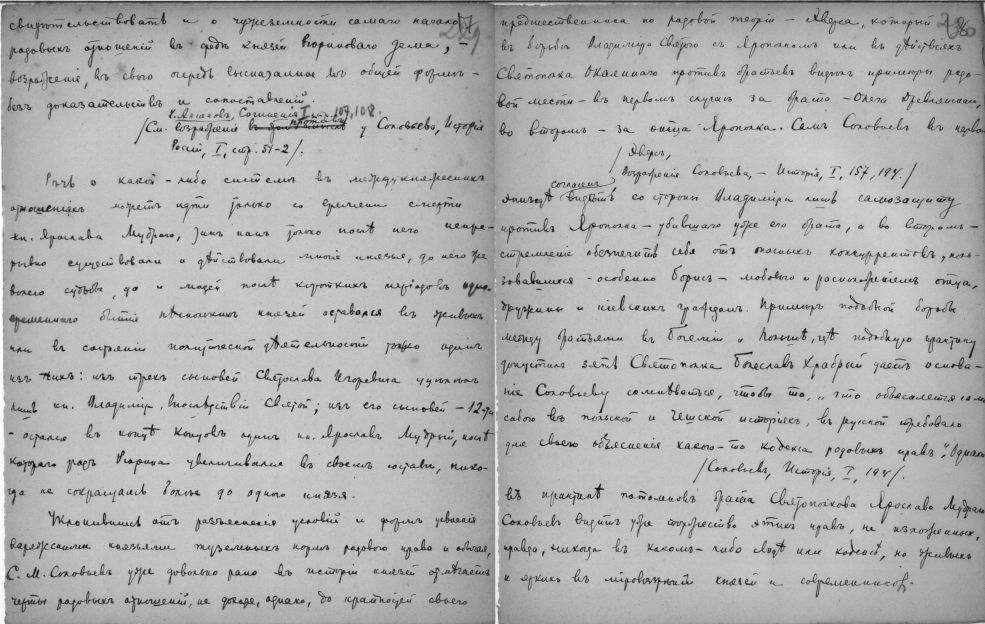 свидѣтельствовать и о чужеземности самаго начала
родовыхъ отношеній въ средѣ князей Рюрикова дома, –
возраженіе, въ свою очередь высказанное въ общей формѣ –
безъ доказательствъ и сопоставленій.
К. Аксаковъ, Сочиненія I, стр. 107, 108.
/См. возраженія противъ у Соловьева, Исторія
Россіи, I, стр. 51-2/.
Рѣчь о какой-либо системѣ въ междукняжескихъ
отношеніяхъ можетъ идти только со времени смерти
кн. Ярослава Мудраго, такъ какъ только послѣ него непре-
рывно существовали и дѣйствовали многіе князья, до него же
волею судьбы, да и людей послѣ короткихъ періодовъ одно-
временнаго бытія нѣсколькихъ князей оставался въ живыхъ
или въ состояніи политической дѣятельности только одинъ
изъ нихъ: изъ трехъ сыновей Святослава Игоревича уцѣлѣлъ
лишь кн. Владиміръ, впослѣдствіи Святой; изъ его сыновей – 12-ти
– остался въ концѣ концовъ одинъ кн. Ярославъ Мудрый, послѣ
котораго родъ Рюрика увеличивался въ своемъ составѣ, нико-
гда не сокращаясь болѣе до одного князя.
Уклонившись отъ разъясненія условій и формъ усвоенія
варяжскими князьями туземныхъ нормъ родового права и обычая,
С. М. Соловьевъ уже довольно рано въ исторіи князей отмѣчаетъ
черты родовыхъ отношеній, не доходя, однако, до крайностей своего
предшественника по родовой теоріи – Эверса, который
въ борьбѣ Владиміра Святого съ Ярополкомъ или въ дѣйствіяхъ
Святополка Окаяннаго противъ братьевъ видѣлъ примѣры родо-
вой мести – въ первомъ случаѣ за брата – Олега Древлянскаго,
во второмъ – за отца Ярополка. Самъ Соловьевъ въ первомъ
/Эверсъ,
Возраженія Соловьева, – Исторія, I, 157, 194./
эпизодѣ согласенъ видѣть со стороны Владиміра лишь самозащиту
противъ Ярополка – убившаго уже его брата, а во второмъ –
стремленіе обезпечить себя отъ опасныхъ конкуррентовъ, поль-
зовавшихся – особенно Борисъ – любовью и расположеніемъ отца,
дружины и кіевскихъ гражданъ. Примѣръ подобной борьбы
между братьями въ Богеміи и Польшѣ, гдѣ подобную практику
допустилъ зять Святополка Болеславъ Храбрый даетъ основа-
ніе Соловьеву сомнѣваться, чтобы то, „что объясняется само
собою въ польской и чешской исторіяхъ, въ русской требовало
для своего объясненія какого-то кодекса родовыхъ правъ". Однако
/Соловьевъ, Исторія, I, 194/.
въ практикѣ потомковъ брата Святополкова Ярослава Мудраго
Соловьевъ видитъ уже торжество этихъ правъ, не изложенныхъ,
правда, никогда въ какомъ-либо сводѣ или кодексѣ, но живыхъ
и яркихъ въ міровоззрѣніи князей и современниковъ.